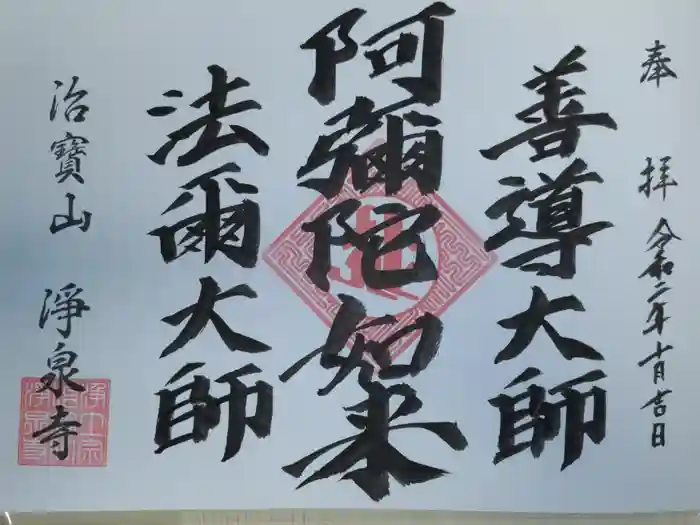 奉拝 令和二年十月吉日
善導大師
阿彌陀如来
法爾大師
治寶山 淨泉寺